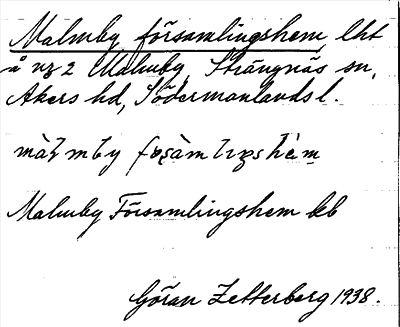 Malmby församlingshem, lht
å nr 2 Malmby, Strängnäs sn,
Åkers hd, Södermanlands l.
Malmby Församlingshem bb
Göran Zetterberg 1938.